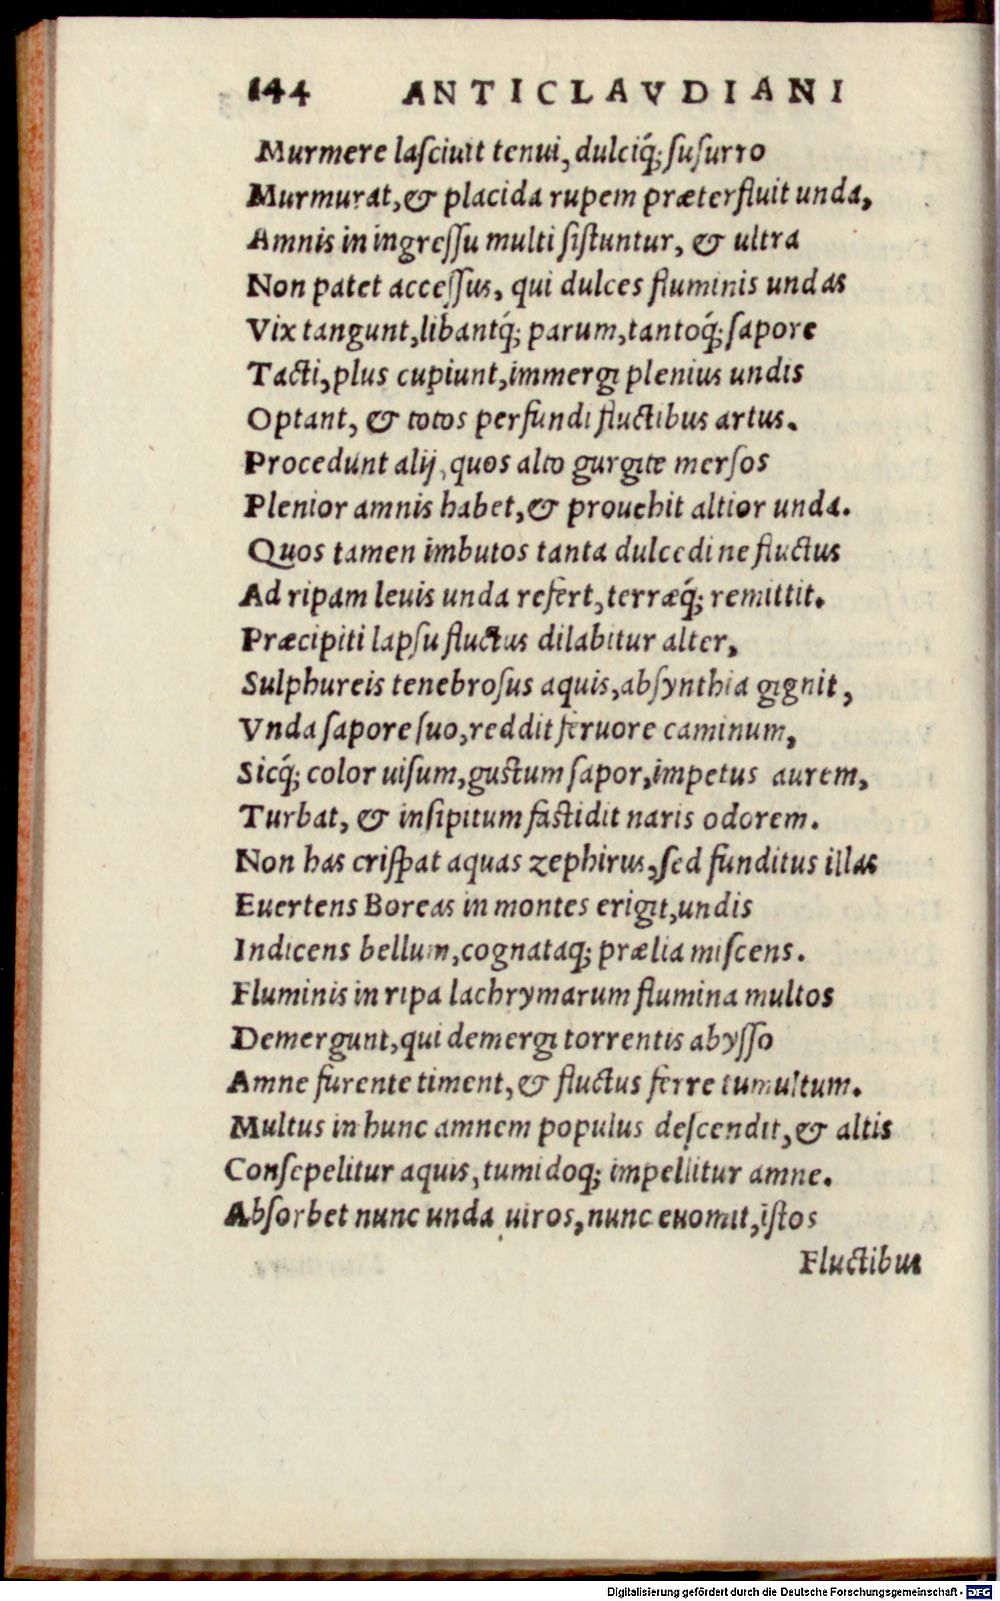 144 ANTICLAVDIANI
Murmere laſciuit tenui, dulciq́; ſuſurro
Murmurat, & placida rupem præterfluit unda,
Amnis in ingreſſu multi ſiſtuntur, & ultra
Non patet acceſſus, qui dulces fluminis undas
Vix tangunt, libantq́; parum, tantoq́; ſapore
Tacti, plus cupiunt, immergi plenius undis
Optant, & totos perfundi fluctibus artus.
Procedunt alij, quos alto gurgite merſos
Plenior amnis habet, & prouehit altior unda.
Quos tamen imbutos tanta dulcedine fluctus
Ad ripam leuis unda refert, terræq́; remittit.
Præcipiti lapſu fluctus dilabitur alter,
Sulphureis tenebroſus aquis, abſynthia gignit,
Vnda ſapore ſuo, reddit feruore caminum,
Sicq́; color uiſum, guſtum ſapor, impetus aurem,
Turbat, & inſipitum faſtidit naris odorem.
Non has criſpat aquas zephirus, ſed funditus illas
Euertens Boreas in montes erigit, undis
Indicens bellum, cognataq; prælia miſcens.
Fluminis in ripa lachrymarum flumina multos
Demergunt, qui demergi torrentis abyſſo
Amne furente timent, & fluctus ferre tumultum.
Multus in hunc amnem populus deſcendit, & altis
Conſepelitur aquis, tumidoq; impellitur amne.
Abſorbet nunc unda uiros, nunc euomit, iſtos
Fluctibus
Digitalisierung gefördert durch die Deutsche Forschungsgemeinschaft - DFG